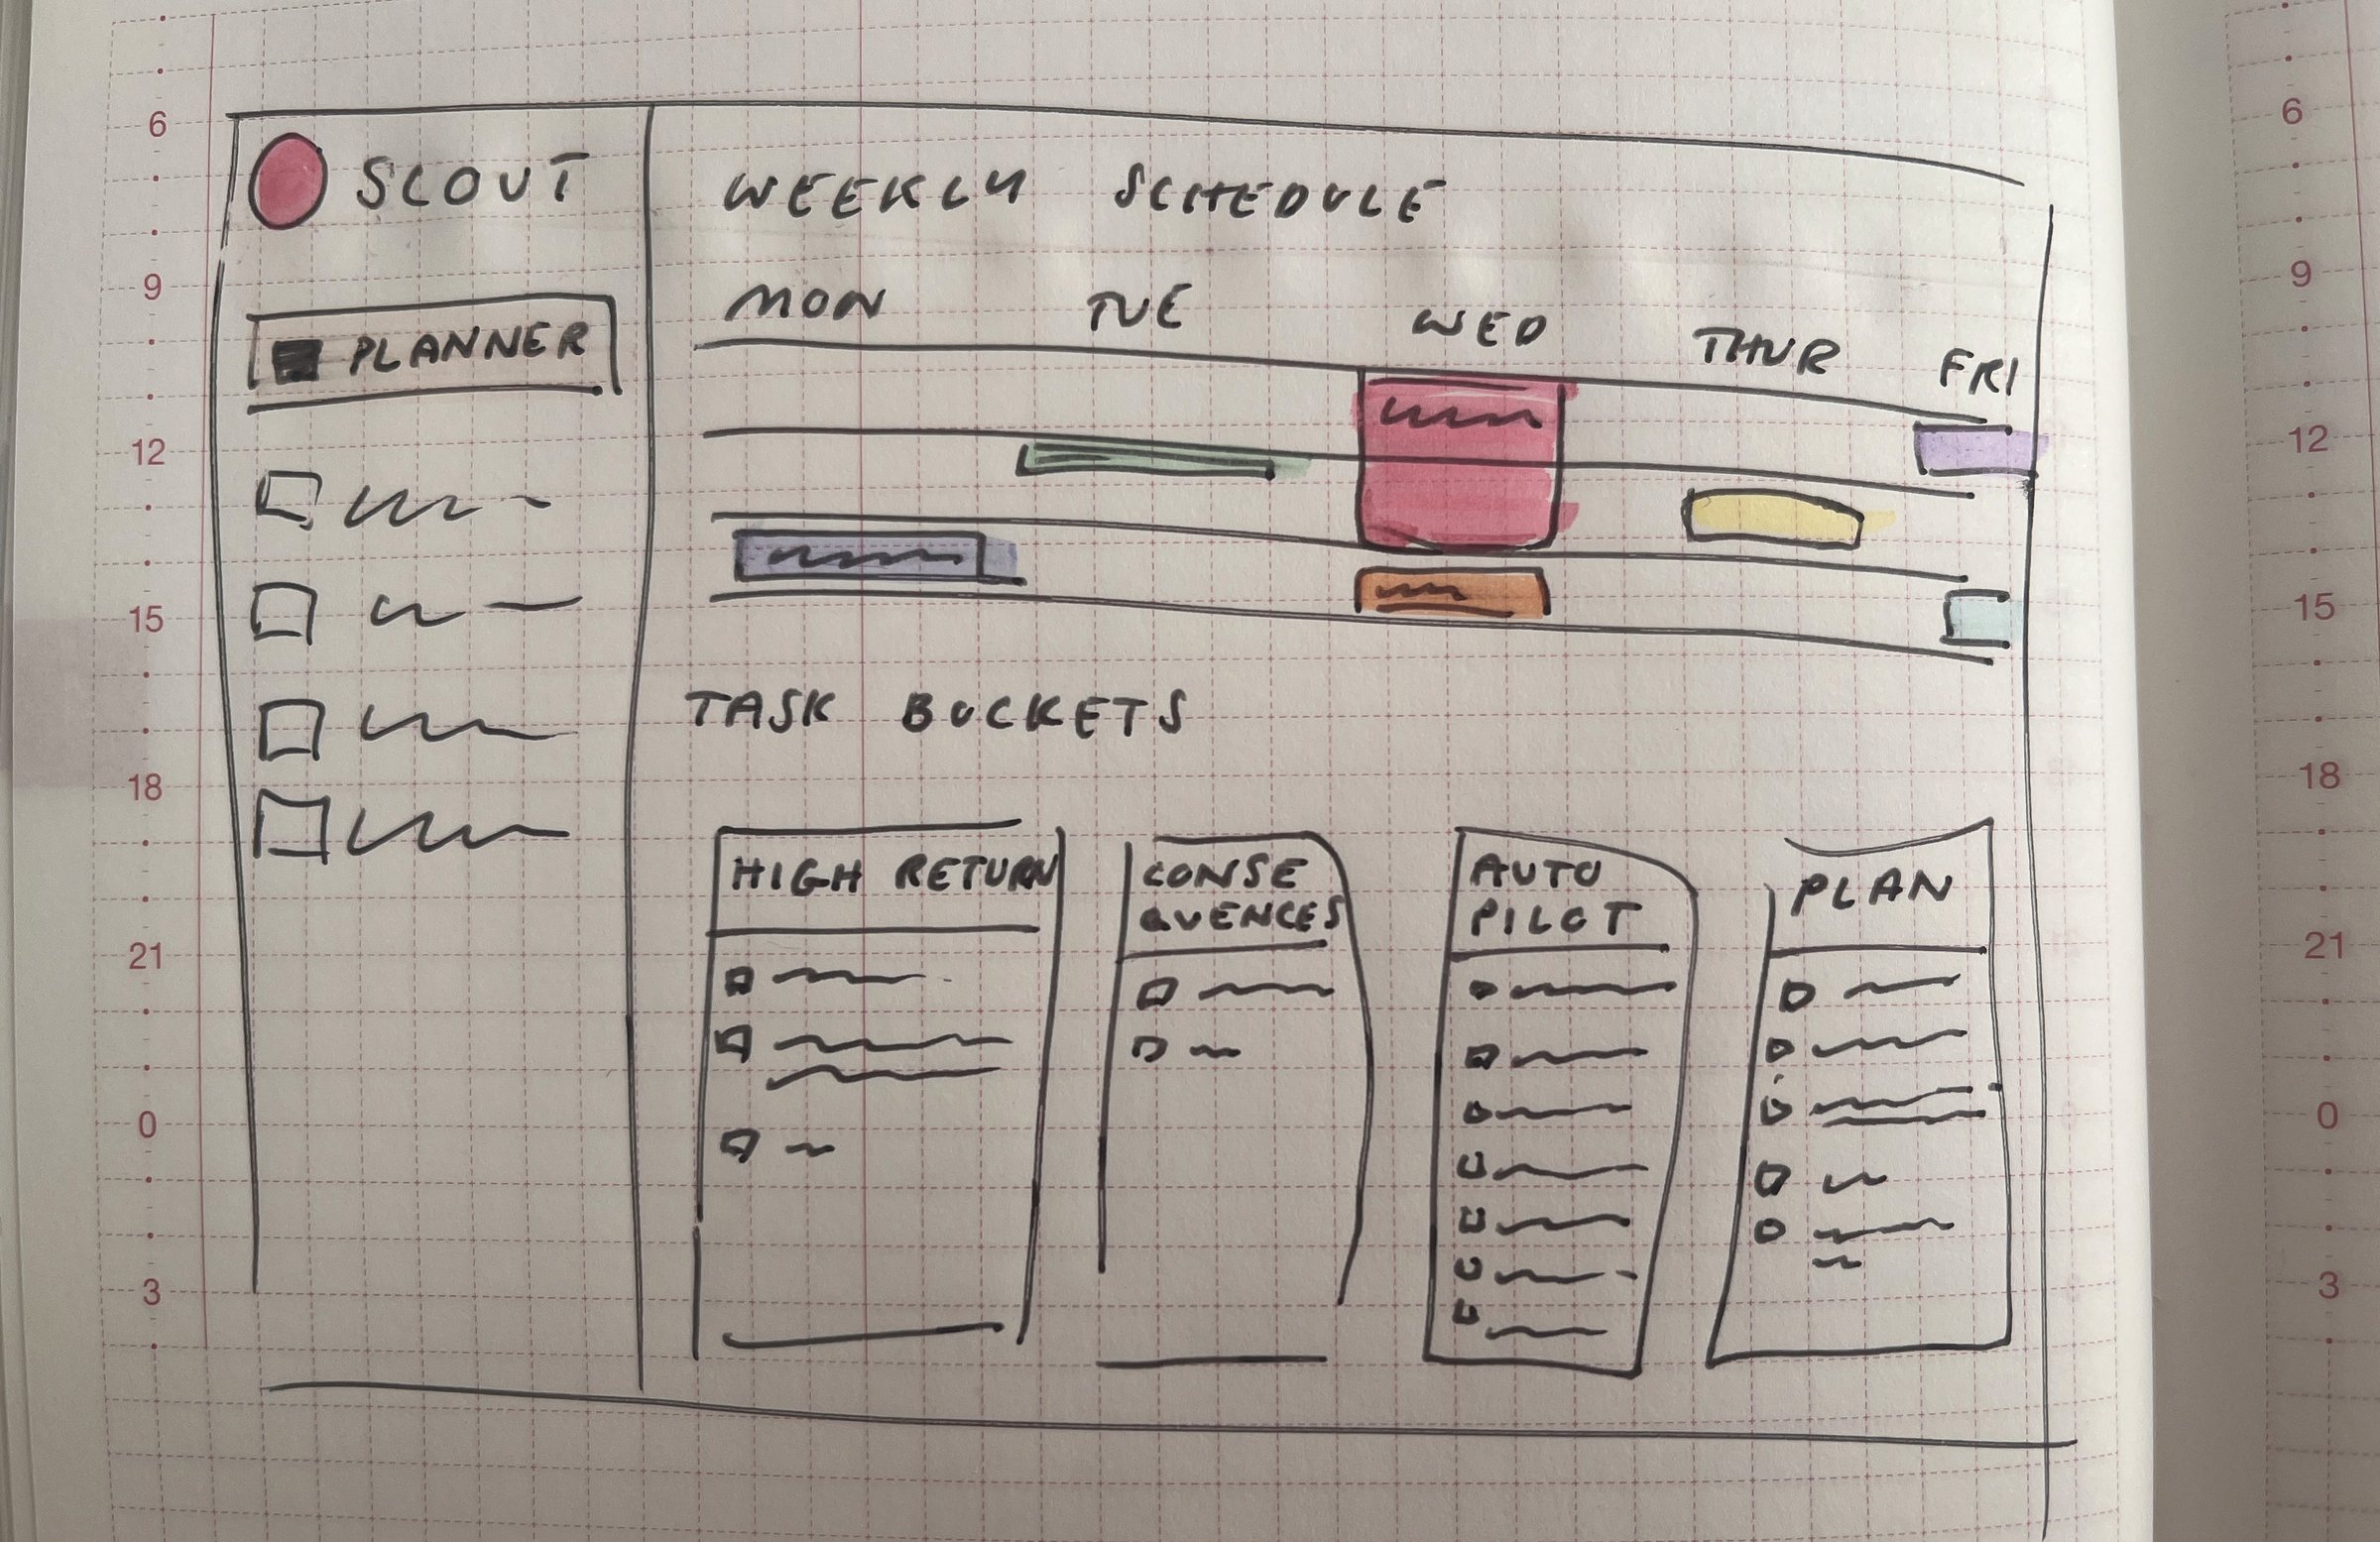 SCOUT
PLANNER
WEEKLY SCHEDULE
MON TUE WED THUR FRI
TASK BUCKETS
HIGH RETURN
CONSE
QUENCES
AUTO
PILOT
PLAN
6
9
12
15
18
21
0
3
6
9
12
15
18
21
0
3